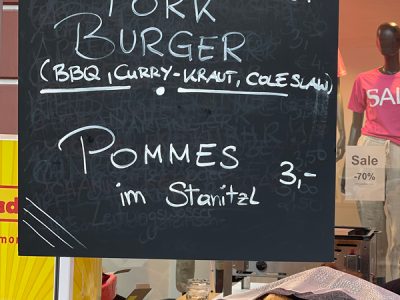 PORK
BURGER
(BBQ, CURRY-KRAUT, COLESLAW)
POMMES
im Stanitzl 3,-
SAL
Sale
-70%